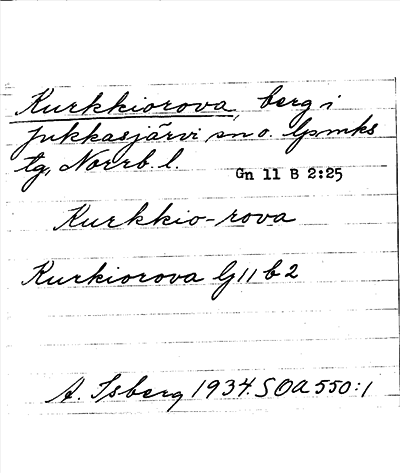 Kurkkiorova, berg i
Jukkasjärvi sn o. lpmks
tg, Norrb. l.
Gn 11 B 2:25
Kurkkio-rova
Kurkiorova G 11 b 2
A. Isberg 1934. SOA 550:1